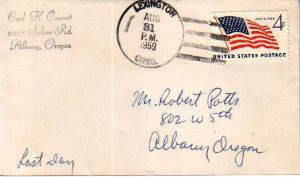 Carl H. Cornet
9305 Salem Rd.
Albany, Oregon
LEXINGTON
AUG
31
P.M.
1959
OREG.
JULY 4, 1959
4¢
UNITED STATES POSTAGE
Mr. Robert Potts
802 W 5th
Albany Oregon
Last Day